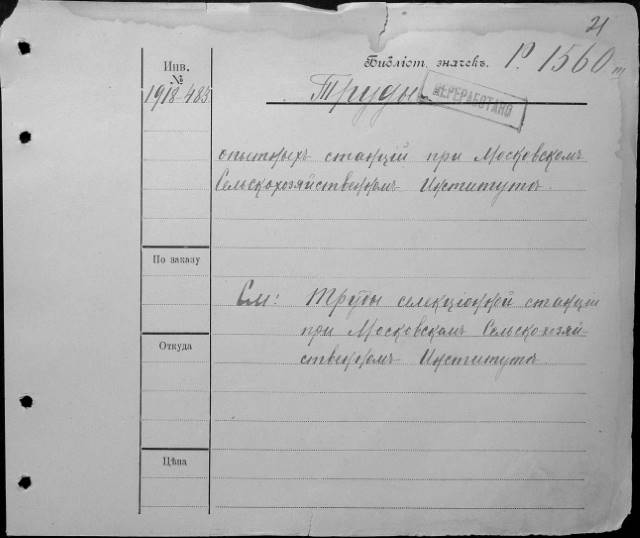 21
Инв.
№
1918-483
Библіот. значекъ. Р. 1560
Труды
ПЕРЕРАБОТАНО
опытныхъ станцій при Московскомъ
Сельскохозяйственномъ Институтѣ.
По заказу
См: Труды селекціонной станціи
при Московскомъ Сельскохозяй-
ственномъ Институтѣ
Откуда
Цѣна